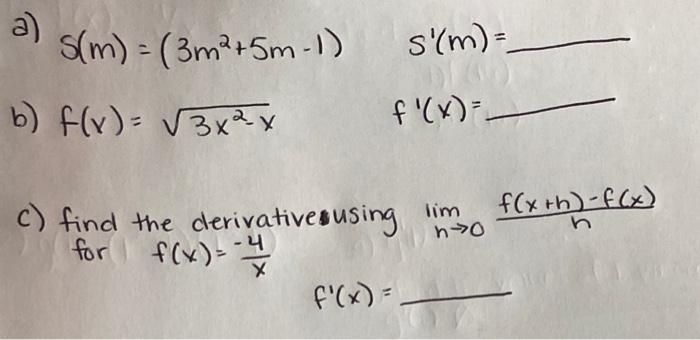 a) S(m) = (3m²+5m-1) S'(m)=____
b) f(x) = √(3x²-x) f'(x)=____
c) find the derivative using lim h→0 f(x+h)-f(x)/h
for f(x)= -4/x
f'(x) = ____